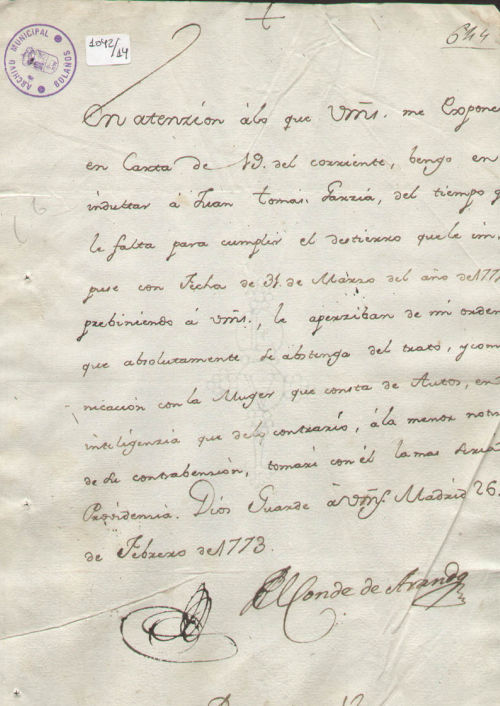 ARCHIVO MUNICIPAL
BOLAÑOS
1042/14
644
En atenzion âlo que Vms. me Expone
en Carta de 19. del corriente, bengo en
indultar â Juan tomas Garzia, del tiempo q
le falta para cumplir el destierro que le im-
puse con Fecha de 31. de Marzo del año de 177
prebiniendo â Vms., le aperziban de mi orden
que absolutamente se abstenga del trato, y com
nicazion con la Muger que consta de Autos, en
inteligenzia que delo contrario, â la menor not
de su contrabenzion, tomarè con èl la mas seria
Providenzia. Dios Guarde â Vms. Madrid 26.
de Febrero de 1773.
El Conde de Aranda